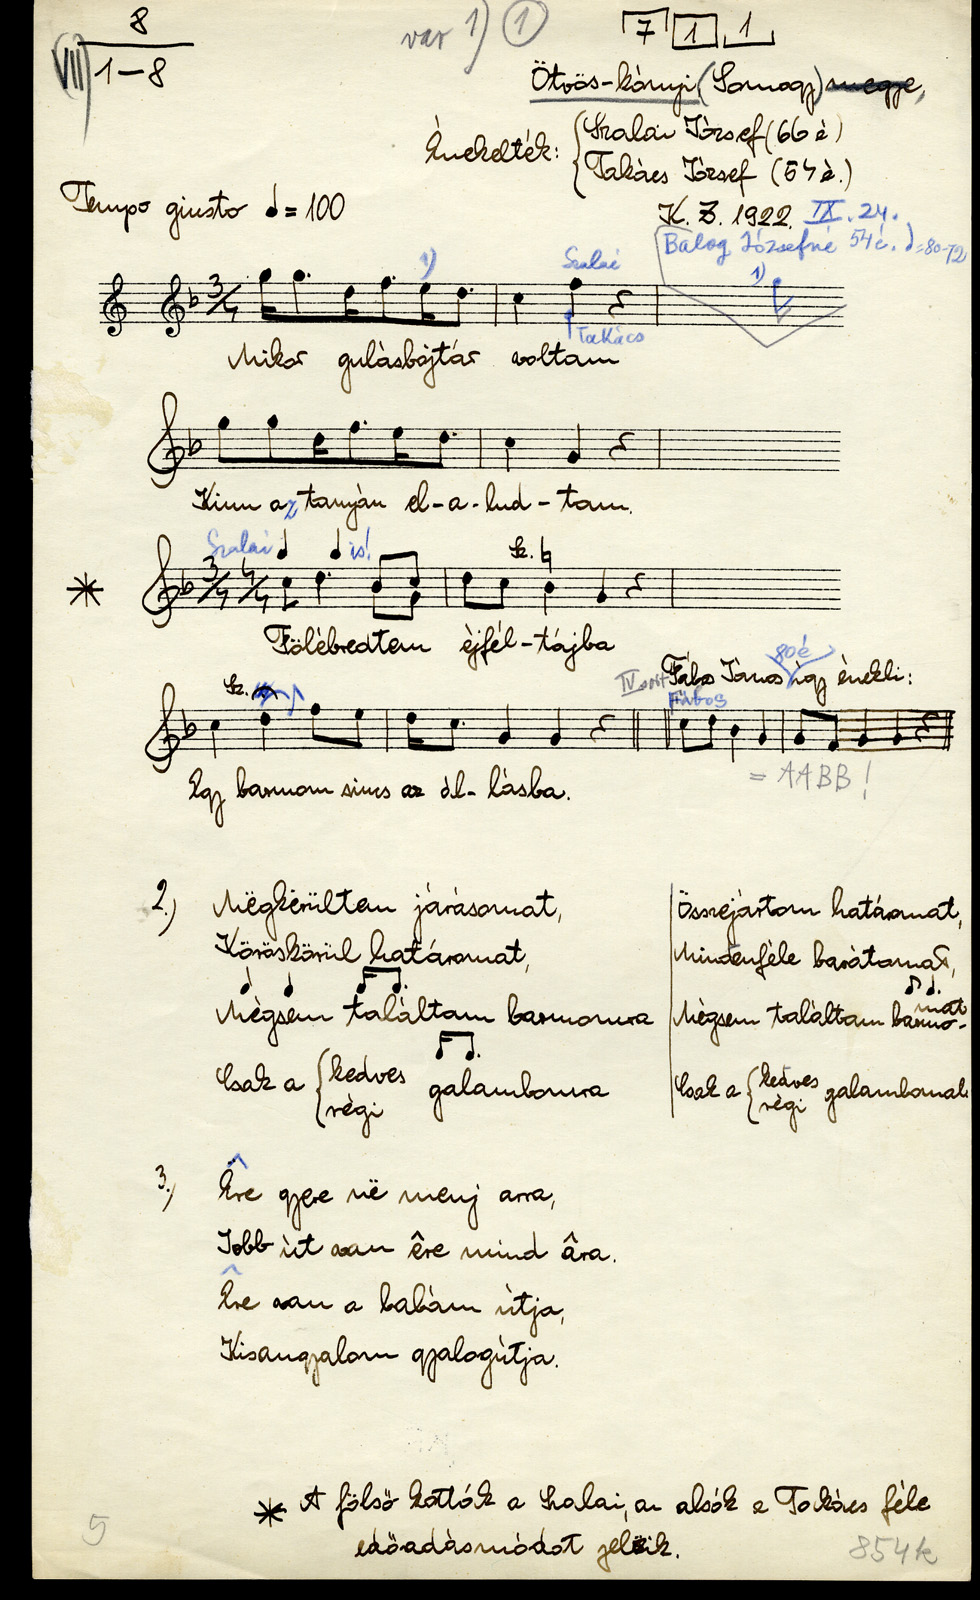 8
(VII) 1–8
var 1) 1
7 1 1
Ötvös-kónyi (Somogy) megye,
Énekelték: { Szalai József (66 é)
Takács József (54 é.)
Tempo giusto = 100
K. Z. 1922. IX. 24.
Balog Józsefné 54 é. = 80-72
1) Szalai 1)
Takács
Mikor gulásbojtár voltam
Kinn az tanyán el-a-lud-tam.
Szalai is! Sz.
* Fölébredtem éjfél-tájba
80 é
IV. sort Fábos János így énekli:
Sz. Fábos
= AABB!
Egy barmom sincs az ál-lásba.
2.) Mëgkerültem járásomat, Összejártam határomat,
Köröskörül határomat, Mindenféle barátomat,
Mégsem találtam barmomra Mégsem találtam barmo-mat
Csak a { kedves régi galambomra Csak a { kedves régi galambomat
3.) Êre gyere në menj arra,
Jobb út van êre mind âra.
Êre van a babám útja,
Kisangyalom gyalogútja.
* A fölső kották a Szalai, az alsók a Takács féle
előadásmódot jelzik.
5 854k